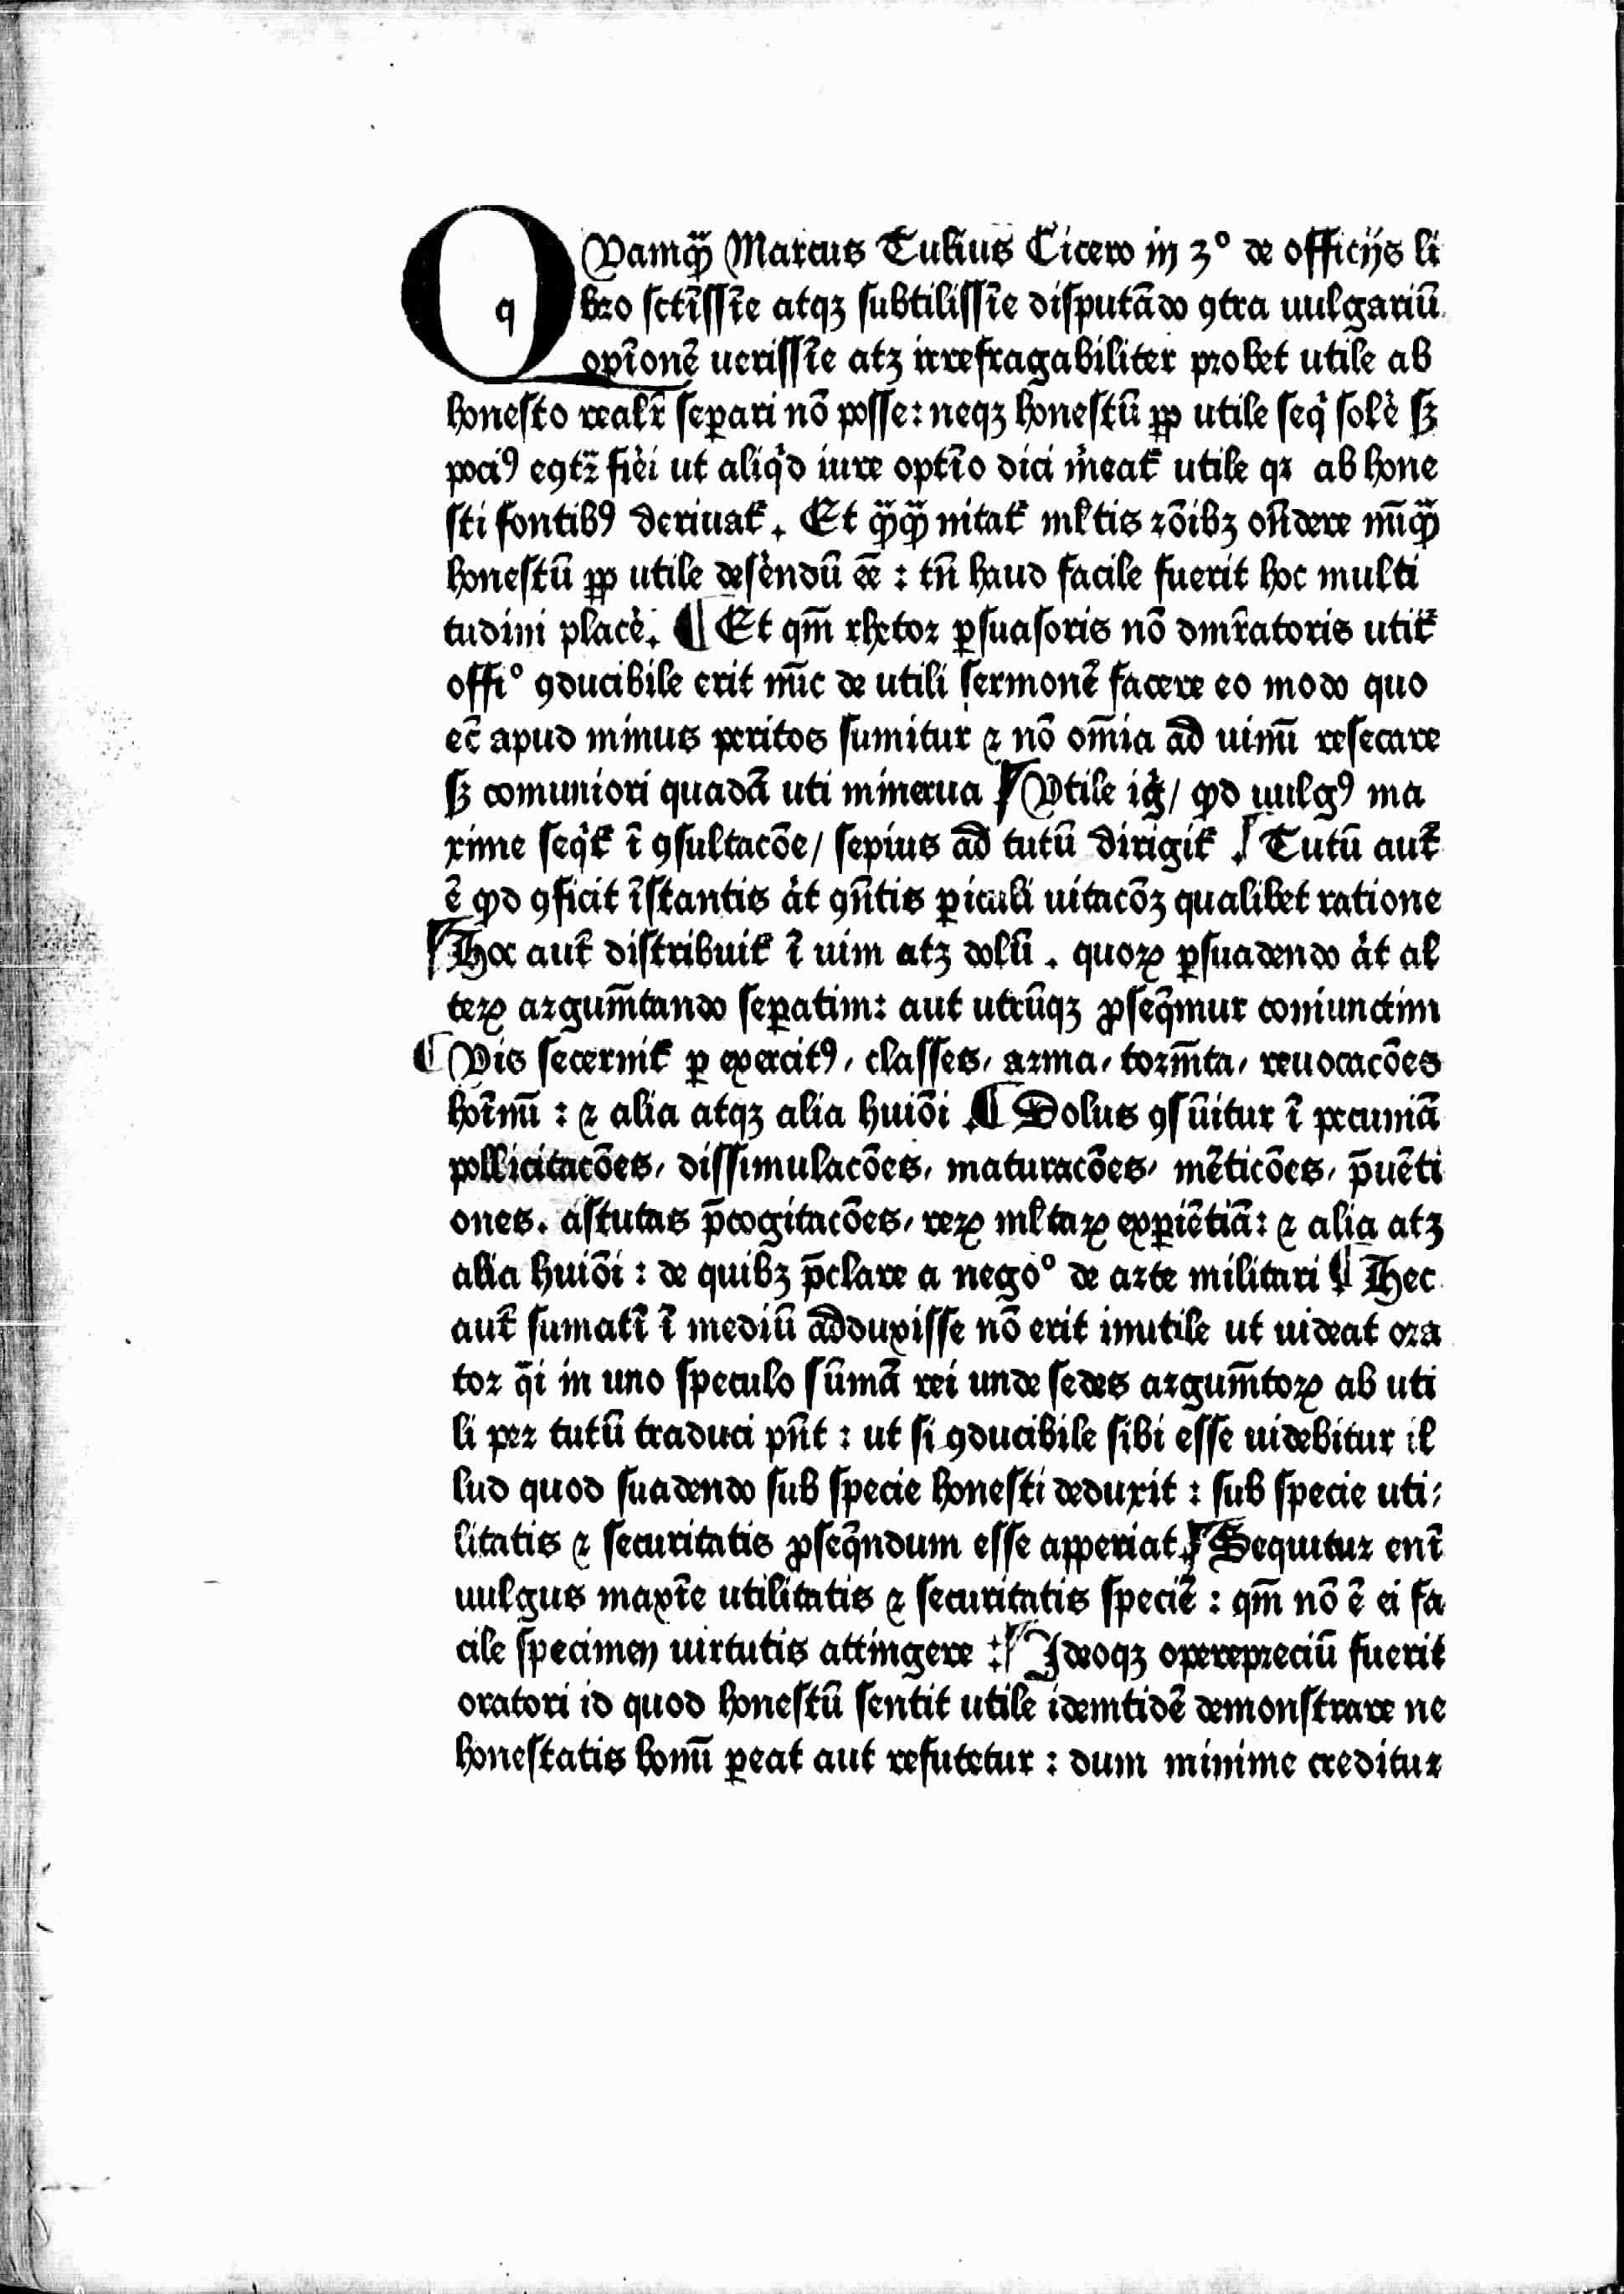 QVamꝙ̃ Marcus Tulius Cicero in 3º de officijs li
bro sctı̄ssı̄e atqꝫ subtilissı̄e disputādo ꝯtra uulgariū
opı̄onē uerissı̄e atꝫ irrefragabiliter probet utile ab
honesto realr̄ seꝑari nō posse: neqꝫ honestū ꝓp utile seq̇ solė sꝫ
pociꝰ eꝯtꝛ̄ fiėi ut aliq̇d iure optı̄o dici ṁeatꝭ utile qꝛ ab hone
sti fontibꝰ deriuatꝭ. Et ꝙ̃ꝙ̃ nitatꝭ mltis rōibꝫ oñdere nūꝙ̃
honestū ꝓp utile desėndū eē: tñ haud facile fuerit hoc multi
tudini placė. ¶ Et qm̄ rhetor ꝑsuasoris nō dm̄ratoris utitꝭ
offiº ꝯducibile erit nūc de utili sermonē facere eo modo quo
ec̄ apud minus peritos sumitur ⁊ nō om̄ia ad uiuū resecare
sꝫ comuniori quadā uti minerua ¶ Vtile iġ/ ꝙd uulgꝰ ma
xime seq̇tꝭ ı̄ ꝯsultacōe/ sepius ad tutū dirigitꝭ. ¶ Tutū autꝭ̄
ē ꝙd ꝯficit ı̄stantis a̍t ꝯñtis ꝑiculi uitacōꝫ qualibet ratione
¶ Hoc aut̄ distribuitꝭ ı̄ uim atꝫ dolū. quoꝝ ꝑsuadendo a̍t al
teꝝ argum̄tando seꝑatim: aut utrūqꝫ ꝓseq̄mur coniunctim
¶ Vis secernitꝭ ꝑ exercitꝰ, classes, arma, torm̄ta, reuocacōes
hoı̄nū: ⁊ alia atqꝫ alia huiōi. ¶ Dolus ꝯsūitur ı̄ pecuniā
pollicitacōes, dissimulacōes, maturacōes, mēticōes, p̄uēti
ones. astutas p̄cogitacōes, reꝝ mltaꝝ exꝑiētiā: ⁊ alia atꝫ
alia huiōi: de quibꝫ p̄clare a negoº de arte militari ¶ Hec
aut̄ sumatı̄ ı̄ mediū adduxisse nō erit inutile ut uideat ora
tor q̄i in uno speculo sūmā rei unde sedes argum̄toꝝ ab uti
li per tutū traduci pn̄t: ut si ꝯducibile sibi esse uidebitur il
lud quod suadendo sub specie honesti deduxit: sub specie uti⸗
litatis ⁊ securitatis ꝓseq̄ndum esse apperiat. ¶ Sequitur enı̄
uulgus maxı̄e utilitatis ⁊ securitatis speciē: qm̄ nō ē ei fa
cile specimen uirtutis attingere: ¶ Ideoqꝫ operepreciū fuerit
oratori id quod honestū sentit utile idemtidē demonstrare ne
honestatis bonū ꝑeat aut refutetur: dum minime creditur